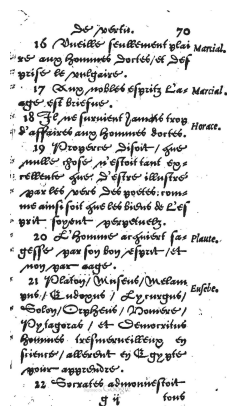 de vertu. 70
16 Vueille seullement plai Martial.
re aux hommes doctes, et des
prise le vulgaire.
17 Aux nobles espritz l'a- Martial.
age est briefue.
18 Il ne suruient jamais trop
d'affaires aux hommes doctes. Horace.
19 Properce disoit, que
nulle chose n'estoit tant ex-
cellente que d'estre illustre
par les vers des poetes: com-
me ainsi soit que les biens de l'es
prit soyent perpetuelz.
20 L'homme acquiert sa- Plaute.
gesse par son bon esprit, et
non par aage.
21 Platon, Museus, Melam
pus, Eudoxus, Lycurgus, Eusebe.
Solon, Orpheus, Homere,
Pytagoras, et Democritus
hommes tresmerueilleux en
science, allerent en Egypte
pour apprendre.
22 Socrates admonnestoit
g ij tous